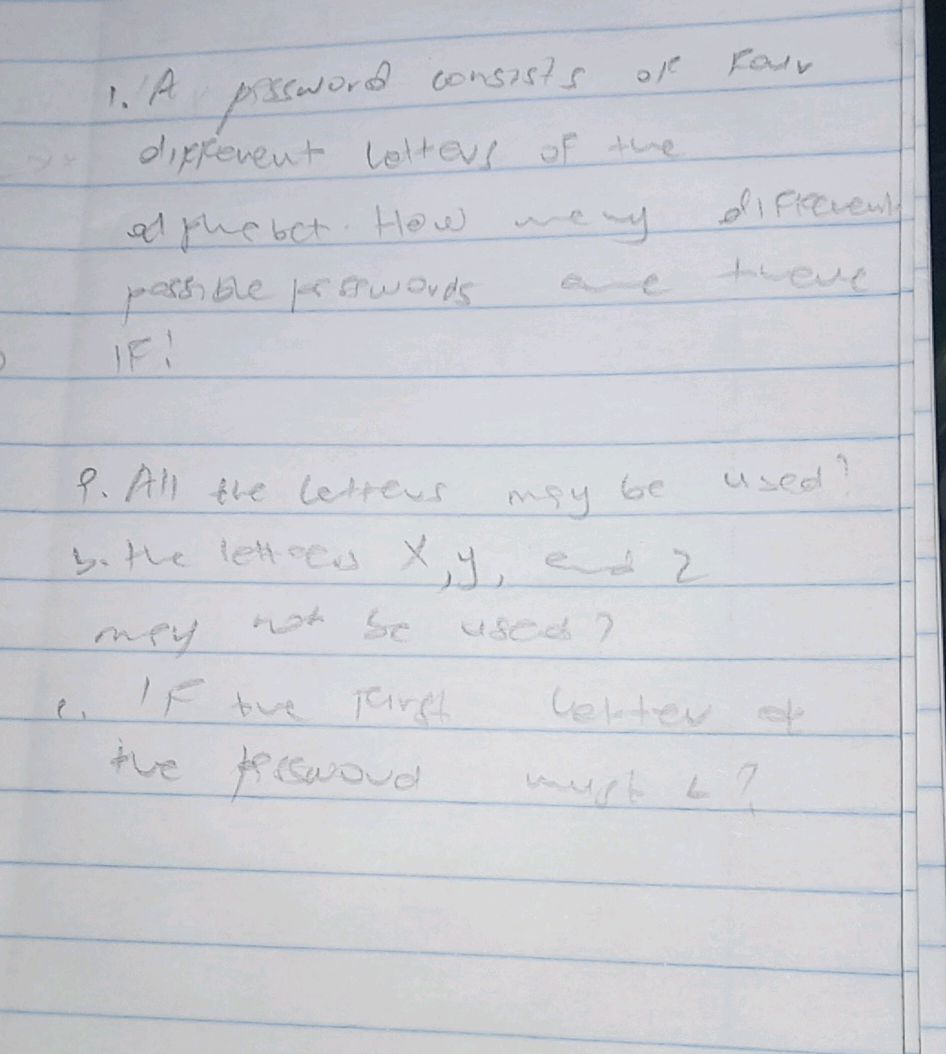 1. A password consists of Four
different letters of the
alphabet. How many different
possible passwords are there
IF!
9. All the letters may be used?
b. the letters X, y, and Z
may not be used?
c. IF the First letter of
the password must L?